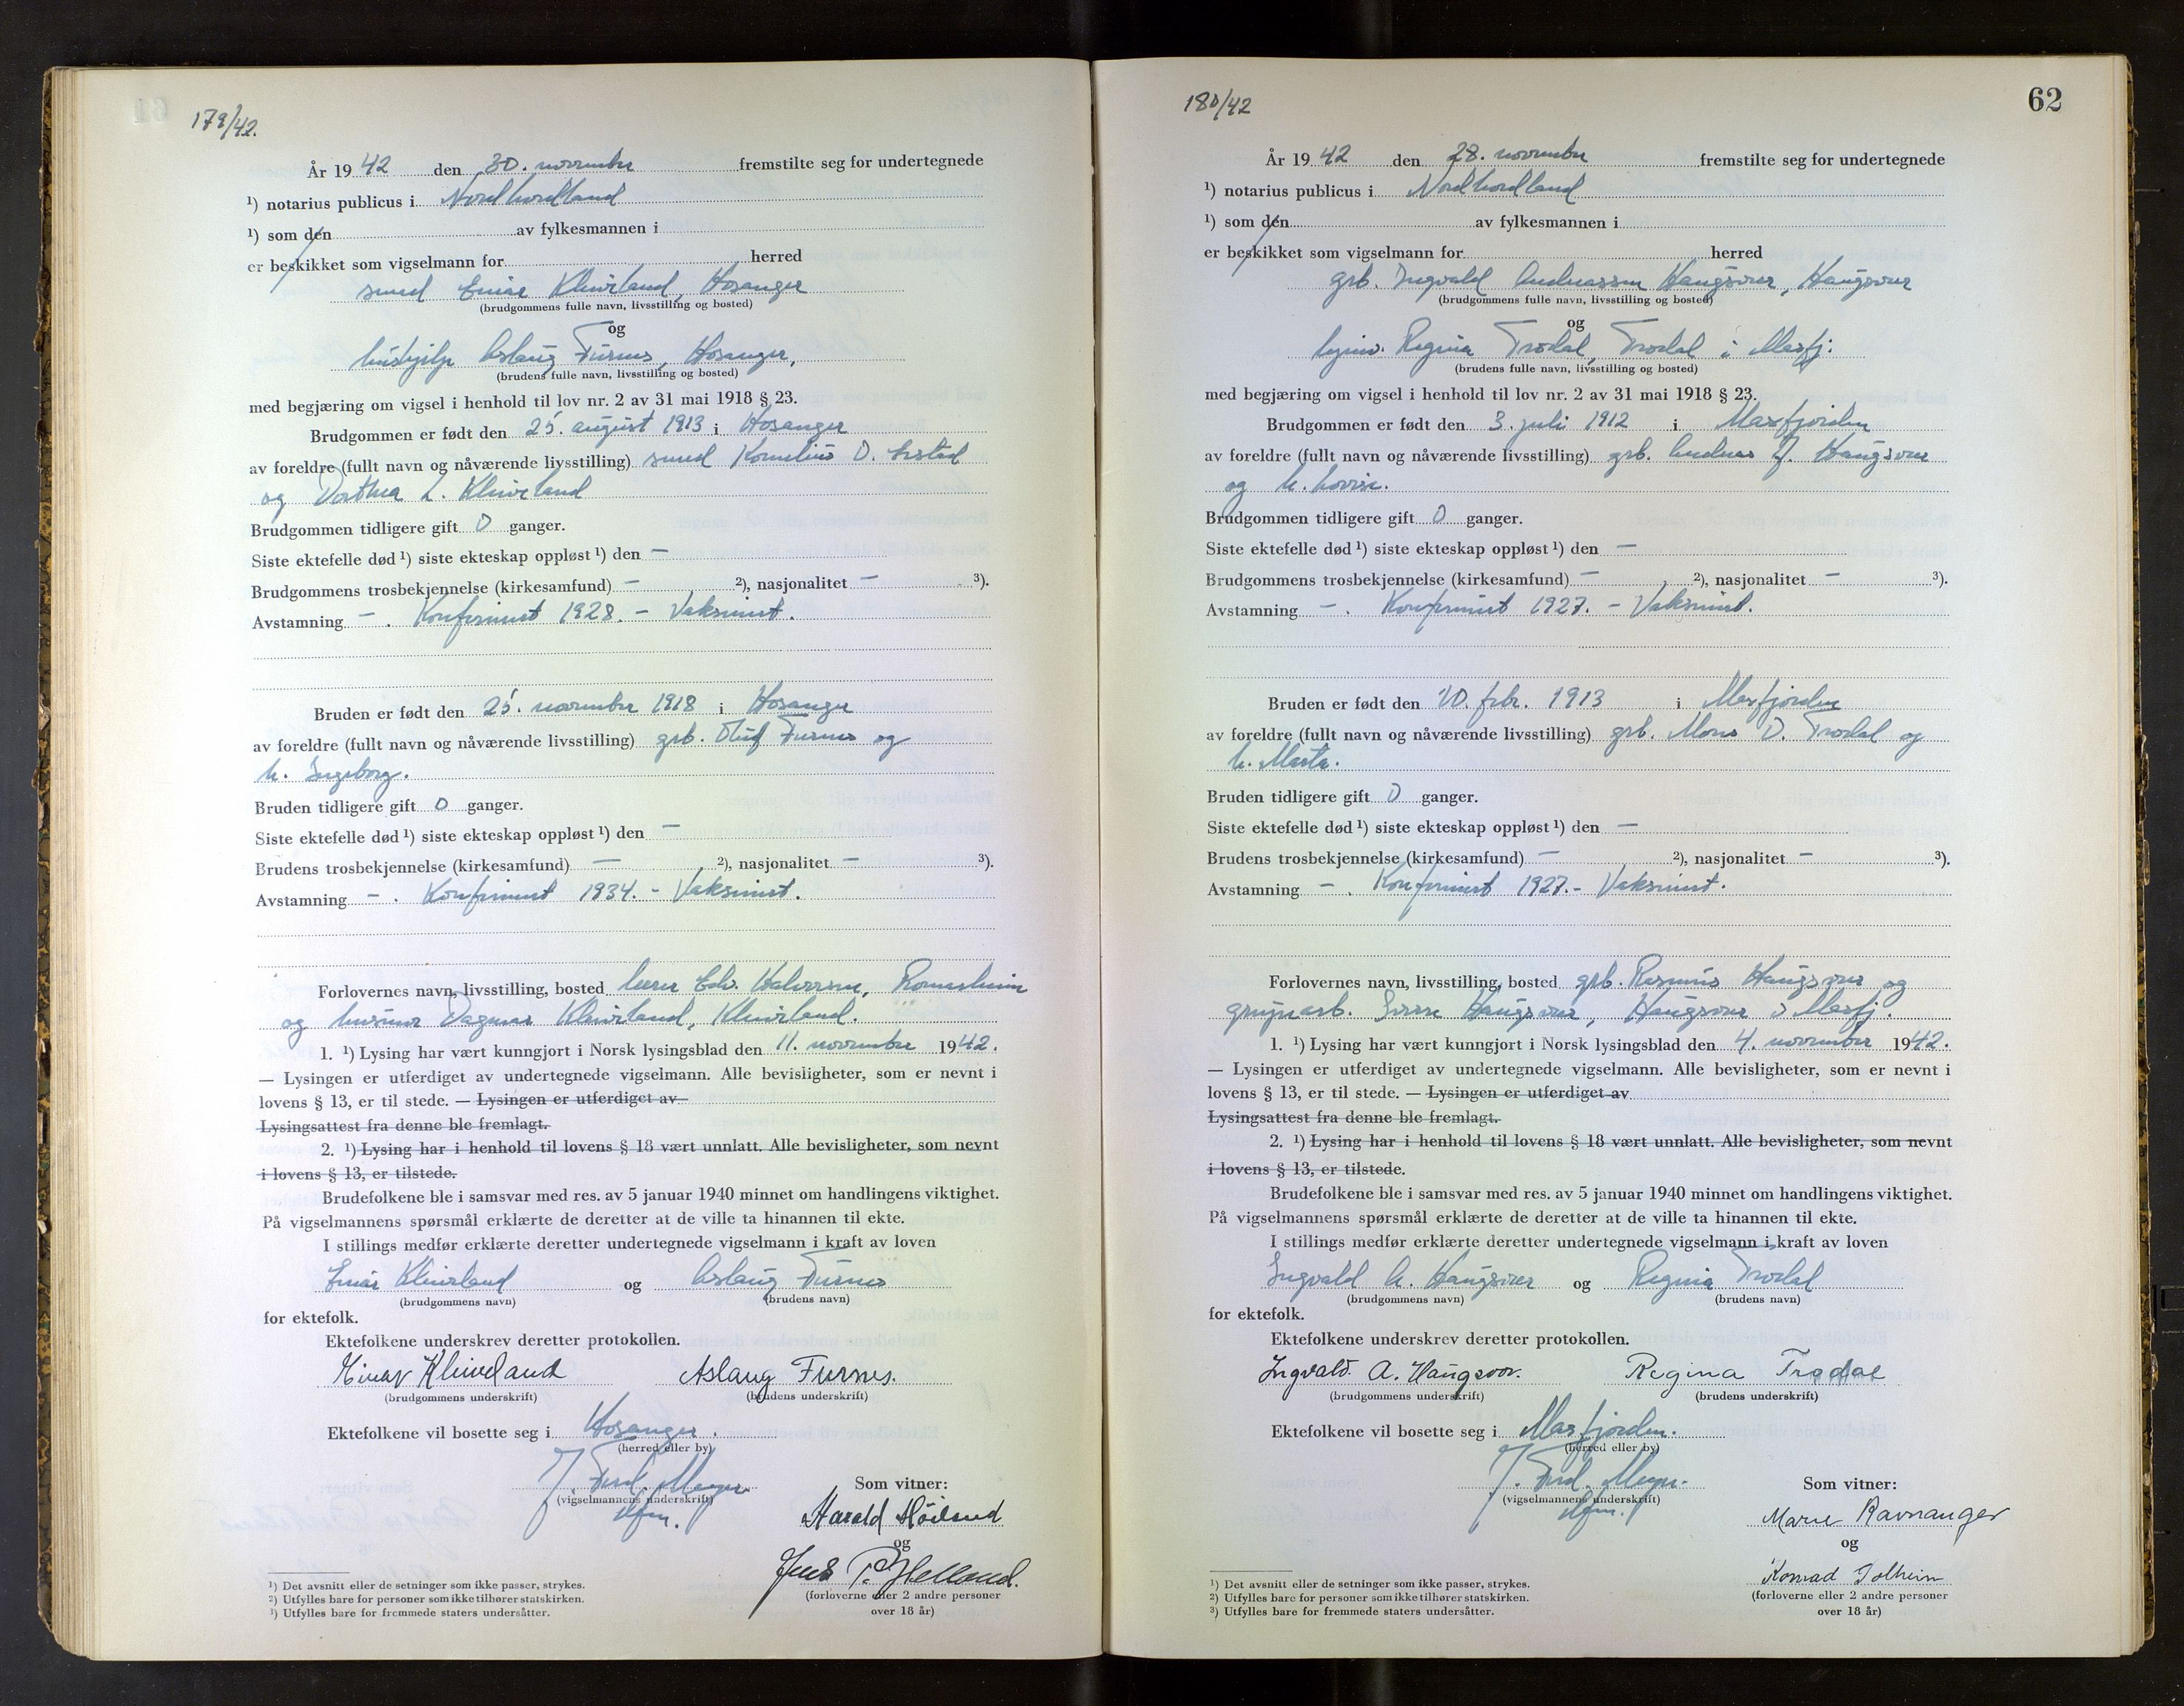 179/42.
År 1942 den 30. november fremstilte seg for undertegnede
¹) notarius publicus i Nordhordland
¹) som den av fylkesmannen i
er beskikket som vigselmann for herred
smed Einar Kleiveland, Hosanger
(brudgommens fulle navn, livsstilling og bosted)
og
hushjelp Aslaug Furnes, Hosanger,
(brudens fulle navn, livsstilling og bosted)
med begjæring om vigsel i henhold til lov nr. 2 av 31 mai 1918 § 23.
Brudgommen er født den 25. august 1913 i Hosanger
av foreldre (fullt navn og nåværende livsstilling) smed Kornelius O.
og Dorthea Kleiveland
Brudgommen tidligere gift 0 ganger.
Siste ektefelle død ¹) siste ekteskap oppløst ¹) den —
Brudgommens trosbekjennelse (kirkesamfund) — ²), nasjonalitet — ³).
Avstamning — . Konfirmert 1928. - Vaksinert.
Bruden er født den 25. november 1918 i Hosanger
av foreldre (fullt navn og nåværende livsstilling) grb. Oluf Furnes og
h. Ingeborg.
Bruden tidligere gift 0 ganger.
Siste ektefelle død ¹) siste ekteskap oppløst ¹) den —
Brudens trosbekjennelse (kirkesamfund) — ²), nasjonalitet — ³).
Avstamning — . Konfirmert 1934. - Vaksinert.
Forlovernes navn, livsstilling, bosted lærer Edv. Halvorsen, Romarheim
og husmor Dagmar Kleiveland, Kleiveland.
1. ¹) Lysing har vært kunngjort i Norsk lysingsblad den 11. november 1942.
— Lysingen er utferdiget av undertegnede vigselmann. Alle bevisligheter, som er nevnt i
lovens § 13, er til stede. — Lysingen er utferdiget av
Lysingsattest fra denne ble fremlagt.
2. ¹) Lysing har i henhold til lovens § 18 vært unnlatt. Alle bevisligheter, som nevnt
i lovens § 13, er tilstede.
Brudefolkene ble i samsvar med res. av 5 januar 1940 minnet om handlingens viktighet.
På vigselmannens spørsmål erklærte de deretter at de ville ta hinannen til ekte.
I stillings medfør erklærte deretter undertegnede vigselmann i kraft av loven
Einar Kleiveland og Aslaug Furnes
(brudgommens navn) (brudens navn)
for ektefolk.
Ektefolkene underskrev deretter protokollen.
Einar Kleiveland Aslaug Furnes.
(brudgommens underskrift) (brudens underskrift)
Ektefolkene vil bosette seg i Hosanger.
(herred eller by)
J. Ferd. Meyer
(vigselmannens underskrift)
Som vitner:
Harald Höiland
og
Jens P. Helland.
(forloverne eller 2 andre personer
over 18 år)
¹) Det avsnitt eller de setninger som ikke passer, strykes.
²) Utfylles bare for personer som ikke tilhører statskirken.
³) Utfylles bare for fremmede staters undersåtter.
62
180/42
År 1942 den 28. november fremstilte seg for undertegnede
¹) notarius publicus i Nordhordland
¹) som den av fylkesmannen i
er beskikket som vigselmann for herred
grb. Ingvald Andreassen Haugsvær, Haugsvær
(brudgommens fulle navn, livsstilling og bosted)
og
Regina Trodal, Trodal i Masfj.
(brudens fulle navn, livsstilling og bosted)
med begjæring om vigsel i henhold til lov nr. 2 av 31 mai 1918 § 23.
Brudgommen er født den 3. juli 1912 i Masfjorden
av foreldre (fullt navn og nåværende livsstilling) grb. Andreas J. Haugsvær
og h. Lovise.
Brudgommen tidligere gift 0 ganger.
Siste ektefelle død ¹) siste ekteskap oppløst ¹) den —
Brudgommens trosbekjennelse (kirkesamfund) — ²), nasjonalitet — ³).
Avstamning — . Konfirmert 1927. - Vaksinert.
Bruden er født den 10. febr. 1913 i Masfjorden
av foreldre (fullt navn og nåværende livsstilling) grb. Mons D. Trodal og
h. Marta.
Bruden tidligere gift 0 ganger.
Siste ektefelle død ¹) siste ekteskap oppløst ¹) den —
Brudens trosbekjennelse (kirkesamfund) — ²), nasjonalitet — ³).
Avstamning — . Konfirmert 1927. - Vaksinert.
Forlovernes navn, livsstilling, bosted grb. Rasmus Haugsvær og
Sverre Haugsvær, Haugsvær i Masfj.
1. ¹) Lysing har vært kunngjort i Norsk lysingsblad den 4. november 1942.
— Lysingen er utferdiget av undertegnede vigselmann. Alle bevisligheter, som er nevnt i
lovens § 13, er til stede. — Lysingen er utferdiget av
Lysingsattest fra denne ble fremlagt.
2. ¹) Lysing har i henhold til lovens § 18 vært unnlatt. Alle bevisligheter, som nevnt
i lovens § 13, er tilstede.
Brudefolkene ble i samsvar med res. av 5 januar 1940 minnet om handlingens viktighet.
På vigselmannens spørsmål erklærte de deretter at de ville ta hinannen til ekte.
I stillings medfør erklærte deretter undertegnede vigselmann i kraft av loven
Ingvald A. Haugsvær og Regina Trodal
(brudgommens navn) (brudens navn)
for ektefolk.
Ektefolkene underskrev deretter protokollen.
Ingvald. A. Haugsvær. Regina Trodal
(brudgommens underskrift) (brudens underskrift)
Ektefolkene vil bosette seg i Masfjorden.
(herred eller by)
J. Ferd. Meyer.
(vigselmannens underskrift)
Som vitner:
Marie Ravnanger
og
Konrad Solheim
(forloverne eller 2 andre personer
over 18 år)
¹) Det avsnitt eller de setninger som ikke passer, strykes.
²) Utfylles bare for personer som ikke tilhører statskirken.
³) Utfylles bare for fremmede staters undersåtter.